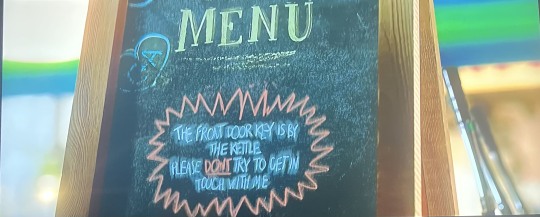 MENU
THE FRONT DOOR KEY IS BY
THE KETTLE
PLEASE DONT TRY TO GET IN
TOUCH WITH ME